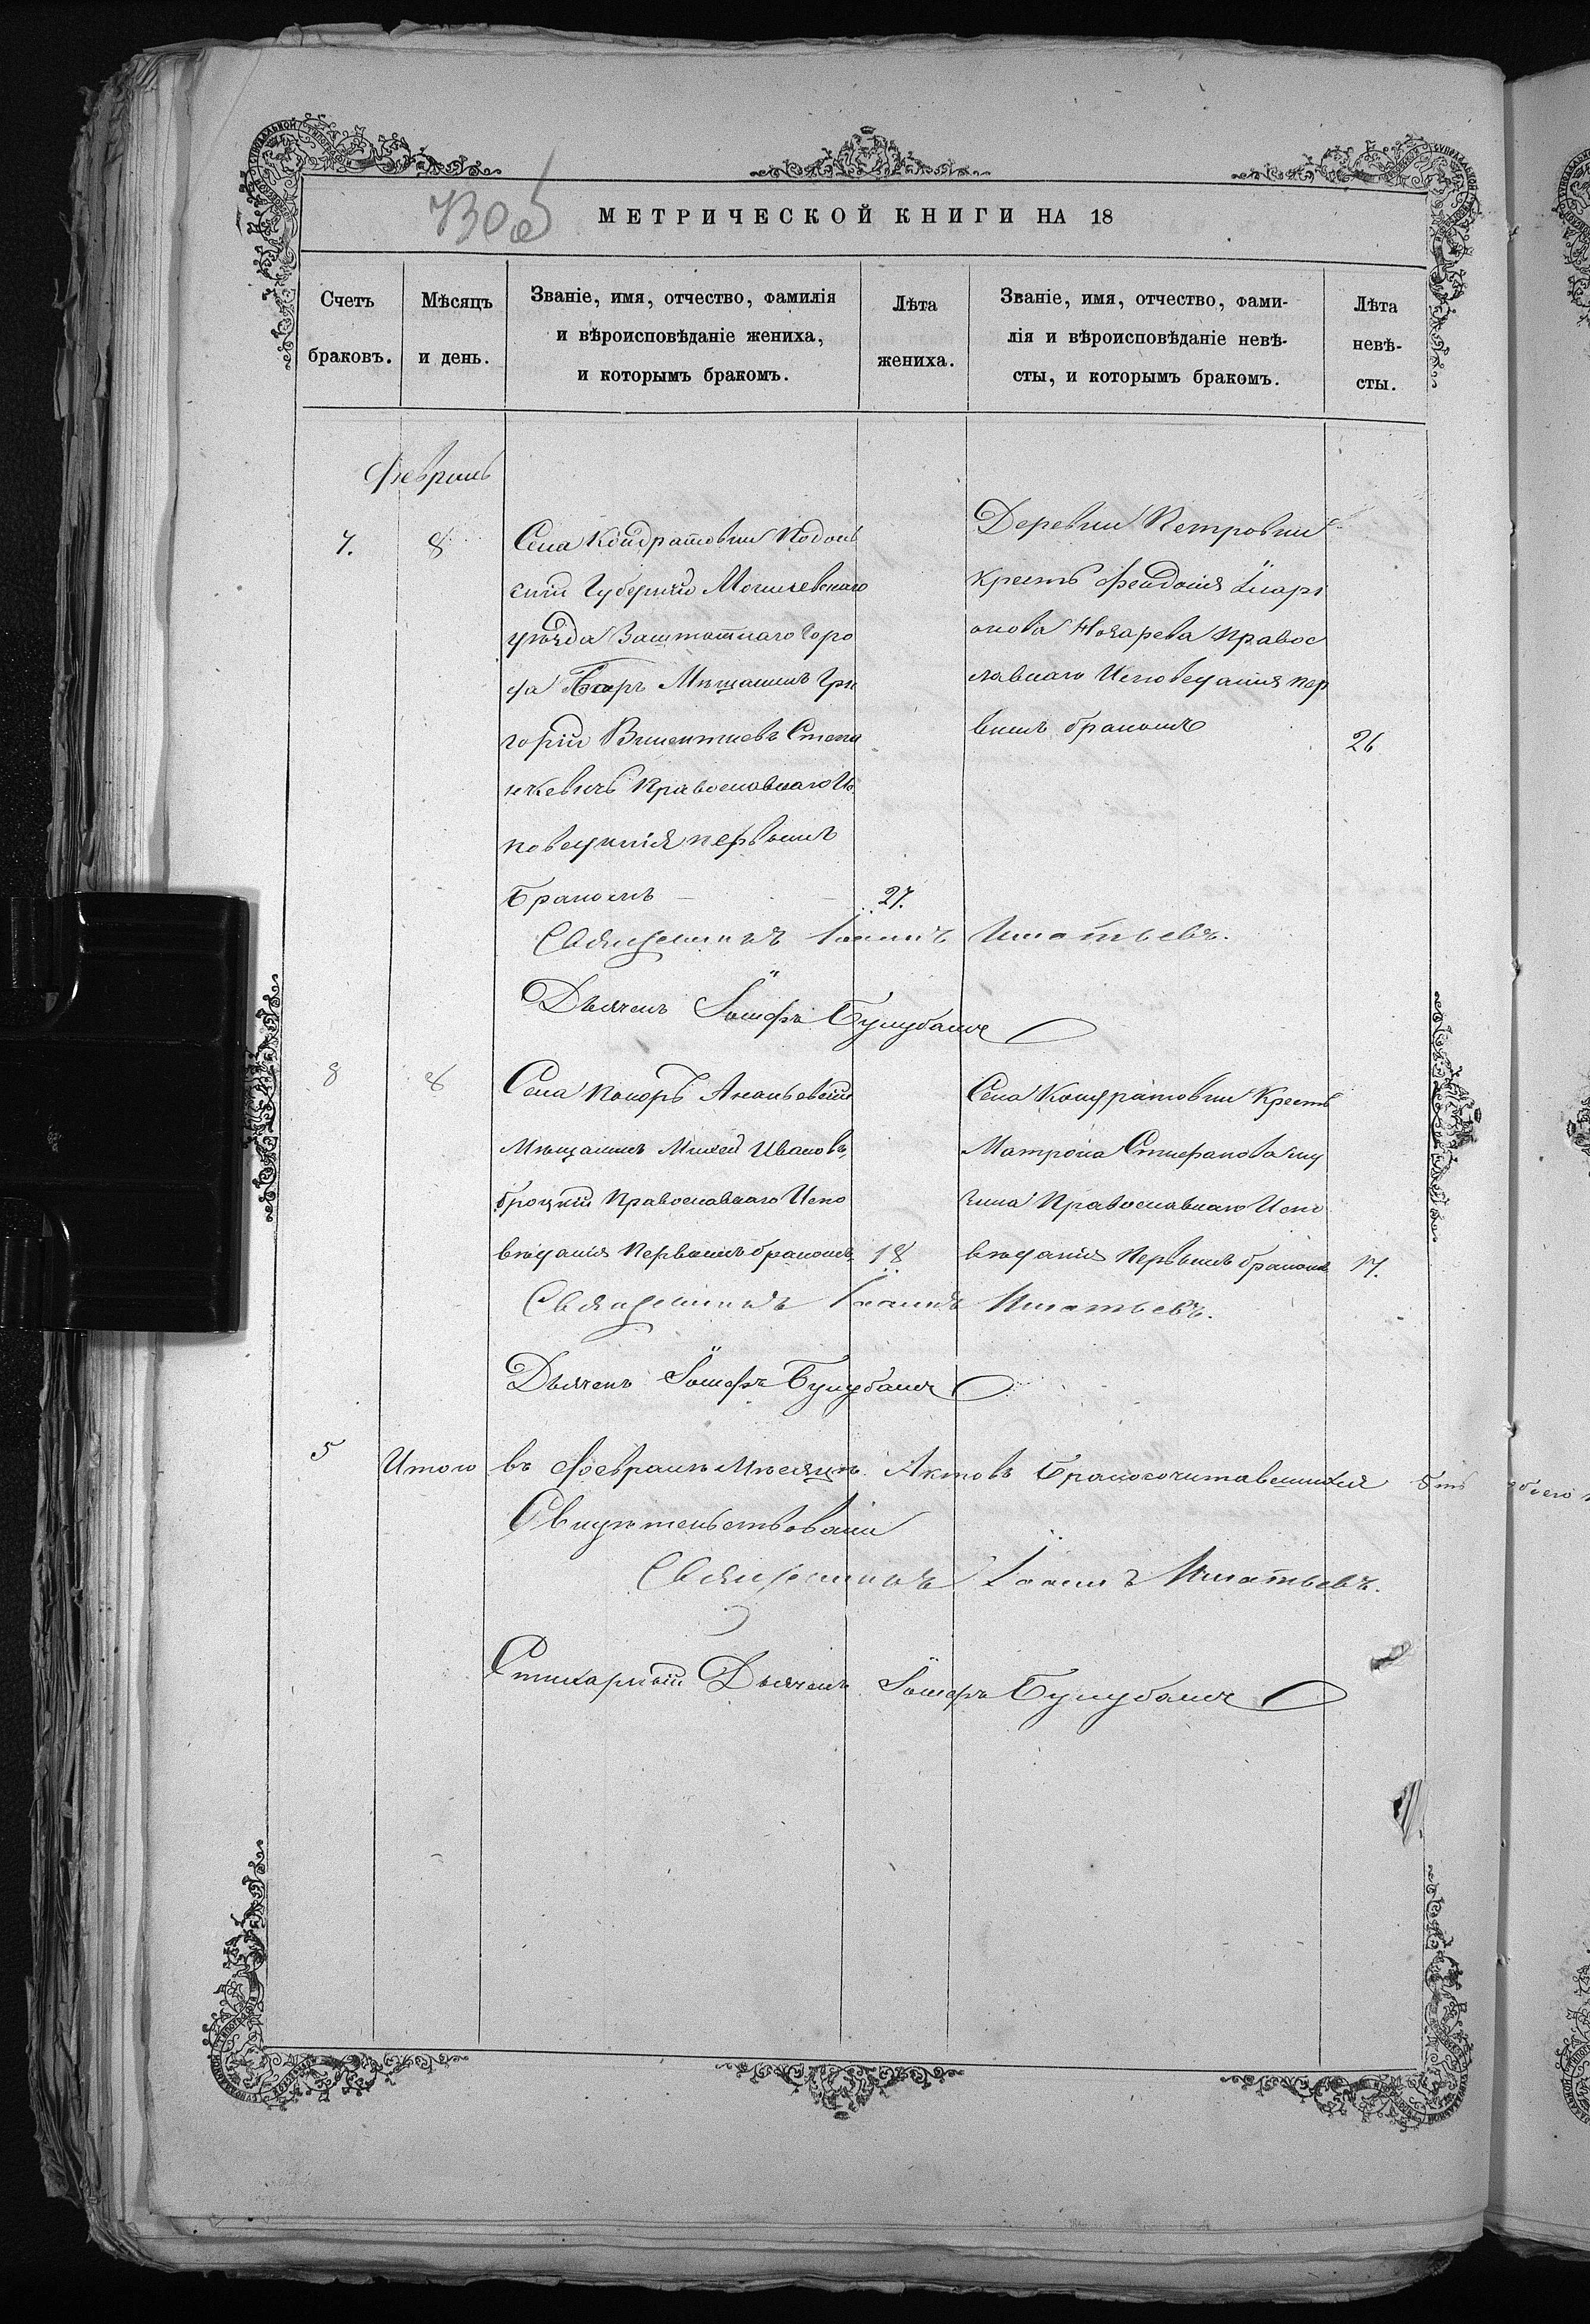 730 об
МЕТРИЧЕСКОЙ КНИГИ НА 18
Счетъ браковъ.
Мѣсяцъ и день.
Званіе, имя, отчество, фамилія
и вѣроисповѣданіе жениха,
и которымъ бракомъ.
Лѣта жениха.
Званіе, имя, отчество, фами-
лія и вѣроисповѣданіе невѣ-
сты, и которымъ бракомъ.
Лѣта невѣ-
сты.
Февраль
7. 8
Села Кондратовки Подоль
скій Губерній Могилевскаго
уѣзда Заштатнаго горо
да Баръ Мѣщанинъ Гри
горій Викентиевъ Степа
нкевичъ Православнаго Ис
поведанія первымъ
бракомъ 27.
Деревни Петровки
крестъ Феодосия Илари
онова Православ
славнаго Исповеданія пер
вымъ бракомъ 26
Священникъ Іоаннъ Игнатьевъ.
Дьячекъ Іосифъ Булубашъ
8 8
Села Покоръ Ананьевскій
Мѣщанинъ Михей Ивановъ
Православнаго Испо
вѣданія Первымъ бракомъ 18
Села Кондратовки Крестъ
Матрона Стефанова
Православнаго Испо
вѣданія Первымъ бракомъ 17.
Священникъ Іоаннъ Игнатьевъ.
Дьячекъ Іосифъ Булубашъ
5 Итого въ Февралѣ Мѣсяцѣ Актовъ Бракосочитавшихся
Свидѣтельствовали
Священникъ Іоаннъ Игнатьевъ.
Стихарный Дьячекъ Іосифъ Булубашъ